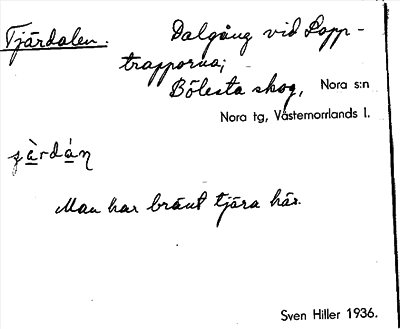 Tjärdalen. Dalgång vid Lopp-
trapporna;
Bölesta skog, Nora s:n
Nora tg, Västernorrlands l.
Man har bränt tjära här.
Sven Hiller 1936.